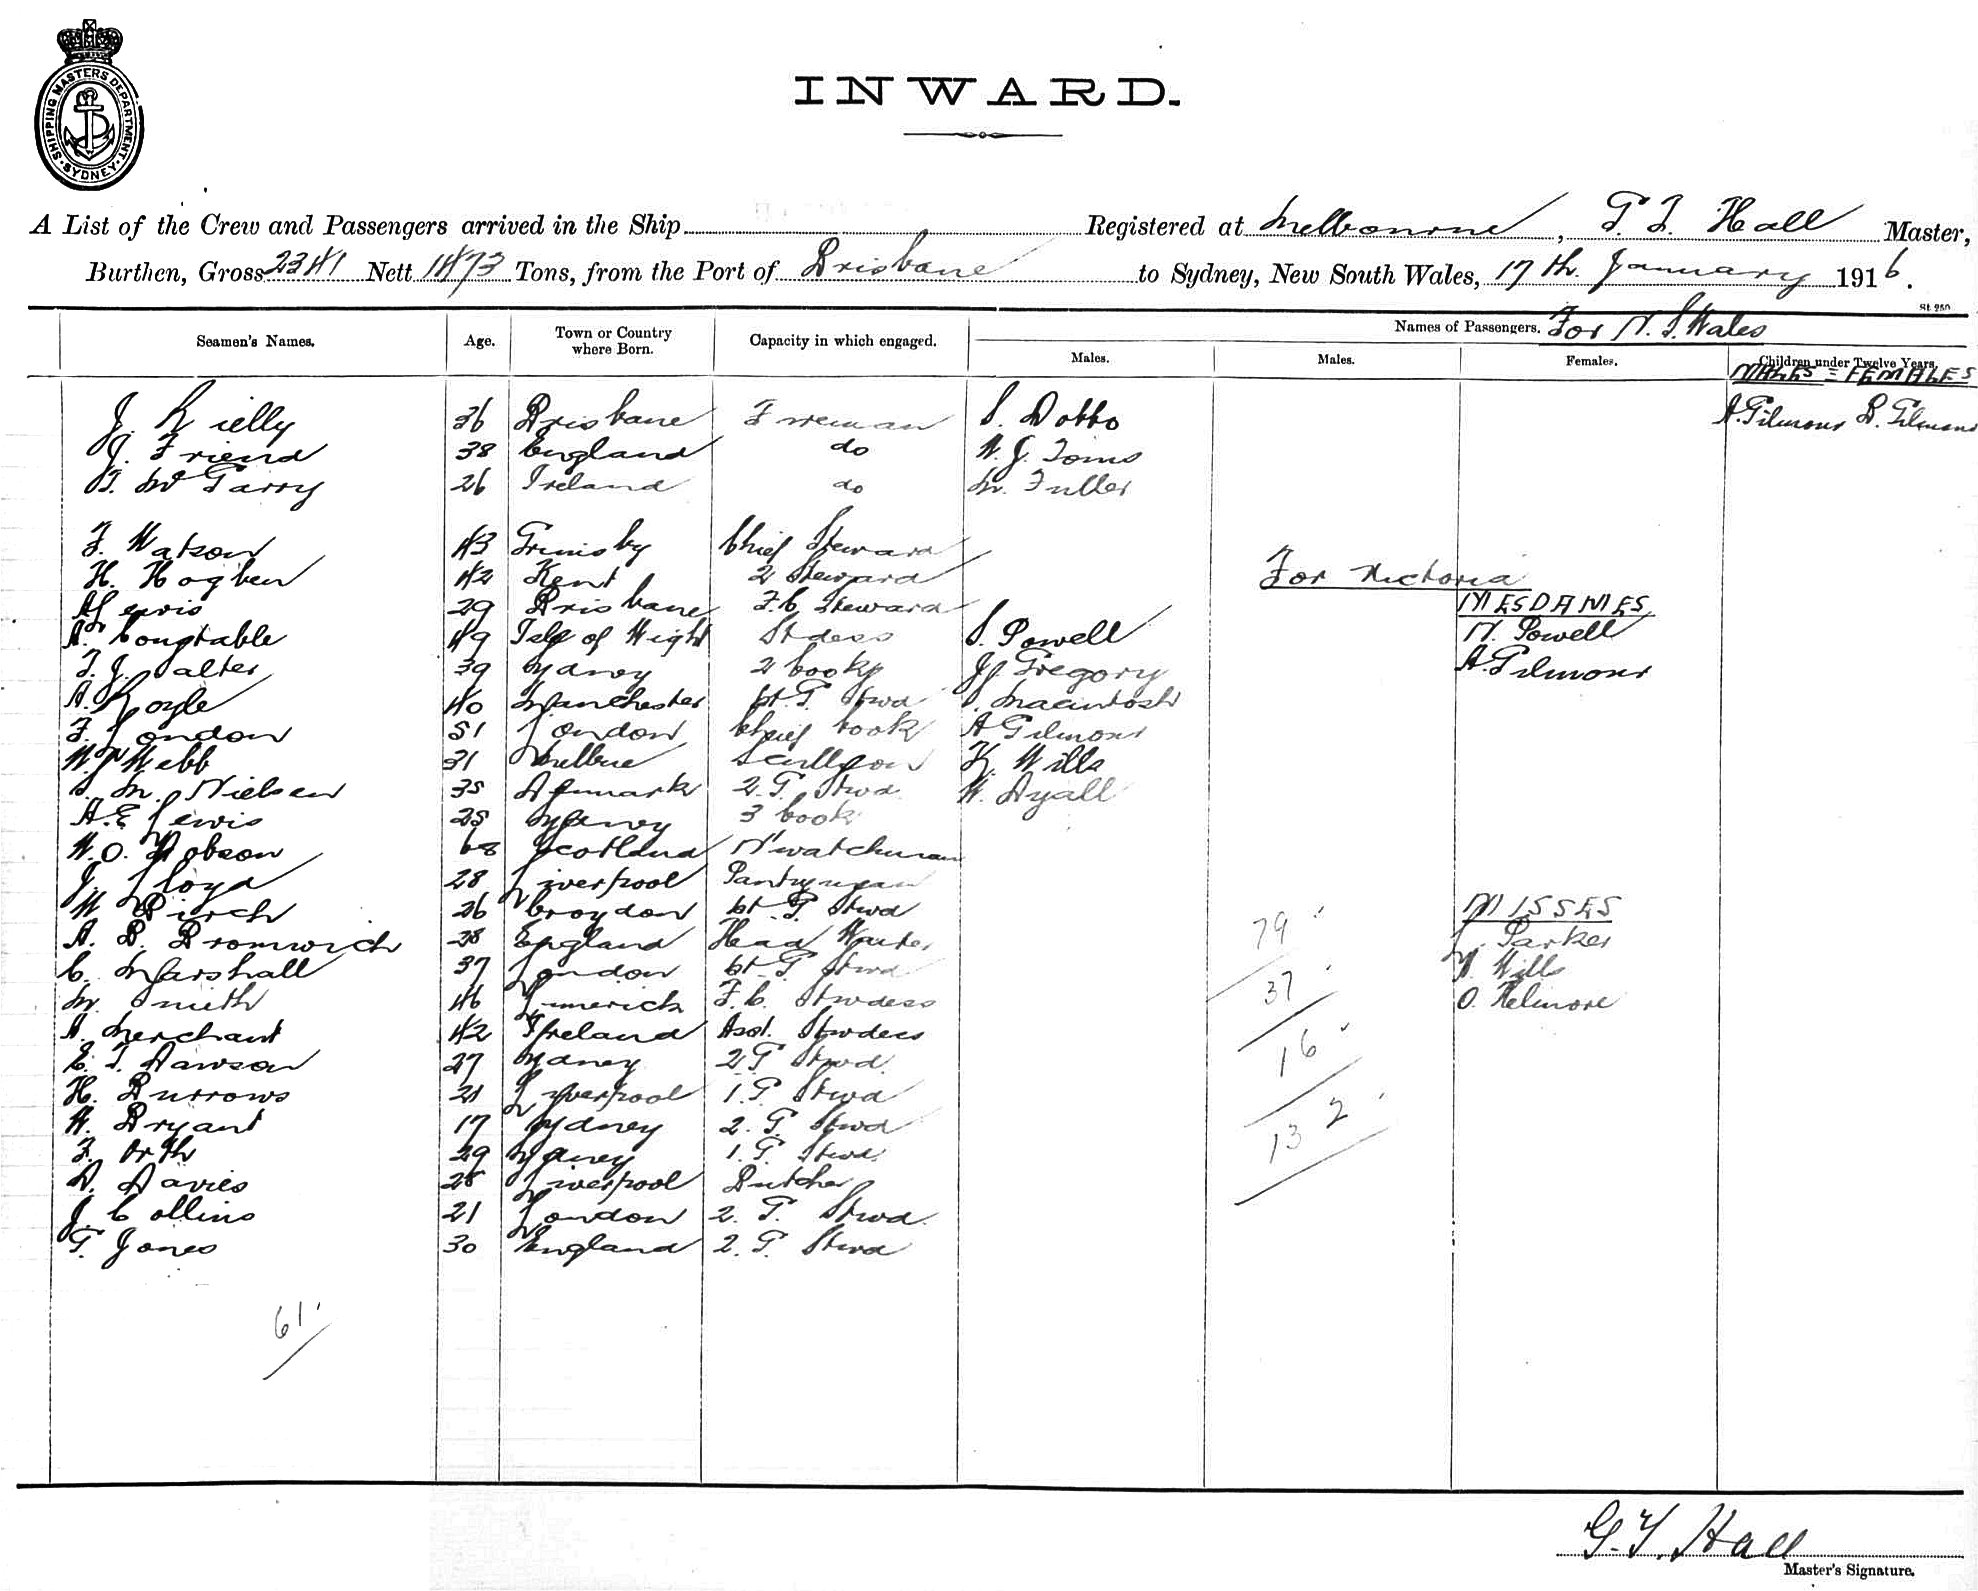 SHIPPING MASTERS DEPARTMENT
SYDNEY
INWARD.
A List of the Crew and Passengers arrived in the Ship Registered at Melbourne, G. T. Hall Master,
Burthen, Gross 2341 Nett 1473 Tons, from the Port of Brisbane to Sydney, New South Wales, 17th January 1916.
St 250
Seamen's Names. Age. Town or Country where Born. Capacity in which engaged. Names of Passengers. For N. S. Wales
Males. Males. Females. Children under Twelve Years.
MALES = FEMALES
J. Kielly 36 Brisbane Fireman S. Dobbo A. Gilmour B. Gilmour
J. Friend 38 England do W. J. Toms
T. McGarry 26 Ireland do M. Fuller
F. Watson 43 Grimsby Chief Steward
H. Hogben 42 Kent 2 Steward For Victoria
A Lewis 29 Brisbane F.C. Steward MESDAMES
A. Constable 49 Isle of Wight Stdess S. Powell N. Powell
T. J. Salter 39 Sydney 2 Cook J. Gregory A. Gilmour
A. Royle 40 Manchester bt. G. Stwd S. Macintosh
F. London 51 London Chief Cook A Gilmour
W. Webb 31 Melbne Scullyon K. Wills
S. M. Nielsen 35 Denmark 2. G. Stwd. W. Dyall
A. E Lewis 25 Sydney 3 Cook
W. O. Dobson 68 Scotland N' watchman
J. Lloyd 28 Liverpool Pantryman
W. Birch 26 Croydon bt. G. Stwd MISSES
A. B. Bromwich 28 England Head Waiter 79 L. Parker
C. Marshall 37 London bt. G Stwd Wills
M. Smith 46 Limerick F.C. Stwdess 37 O. Kelmore
A. Merchant 42 Ireland Asst. Stwdess
E. T. Dawson 27 Sydney 2 G Stwd. 16
H. Burrows 21 Liverpool 1. G. Stwd
W. Bryant 17 Sydney 2. G. Stwd
F. Orth 29 Sydney 1. G. Stwd. 132
D. Davies 28 Liverpool Butcher
J. Collins 21 London 2. G. Stwd.
G. Jones 30 England 2. G. Stwd
61
G. T. Hall
Master's Signature.